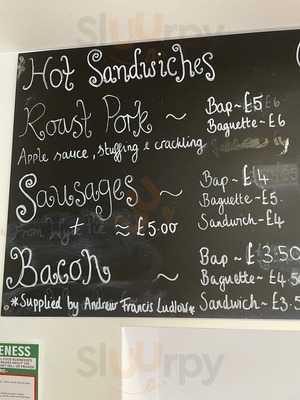 Hot Sandwiches
Roast Pork ~ Bap ~ £5
Baguette ~ £6
Apple sauce, stuffing & crackling
Sausages ~ Bap ~ £4
Baguette ~ £5.
+ ≈ £5.00 Sandwich ~ £4
Bacon ~ Bap ~ £3.50
Baguette ~ £4.50
*Supplied by Andrew Francis Ludlow* Sandwich ~ £3.5
ENESS
Sluurpy
Sluurpy